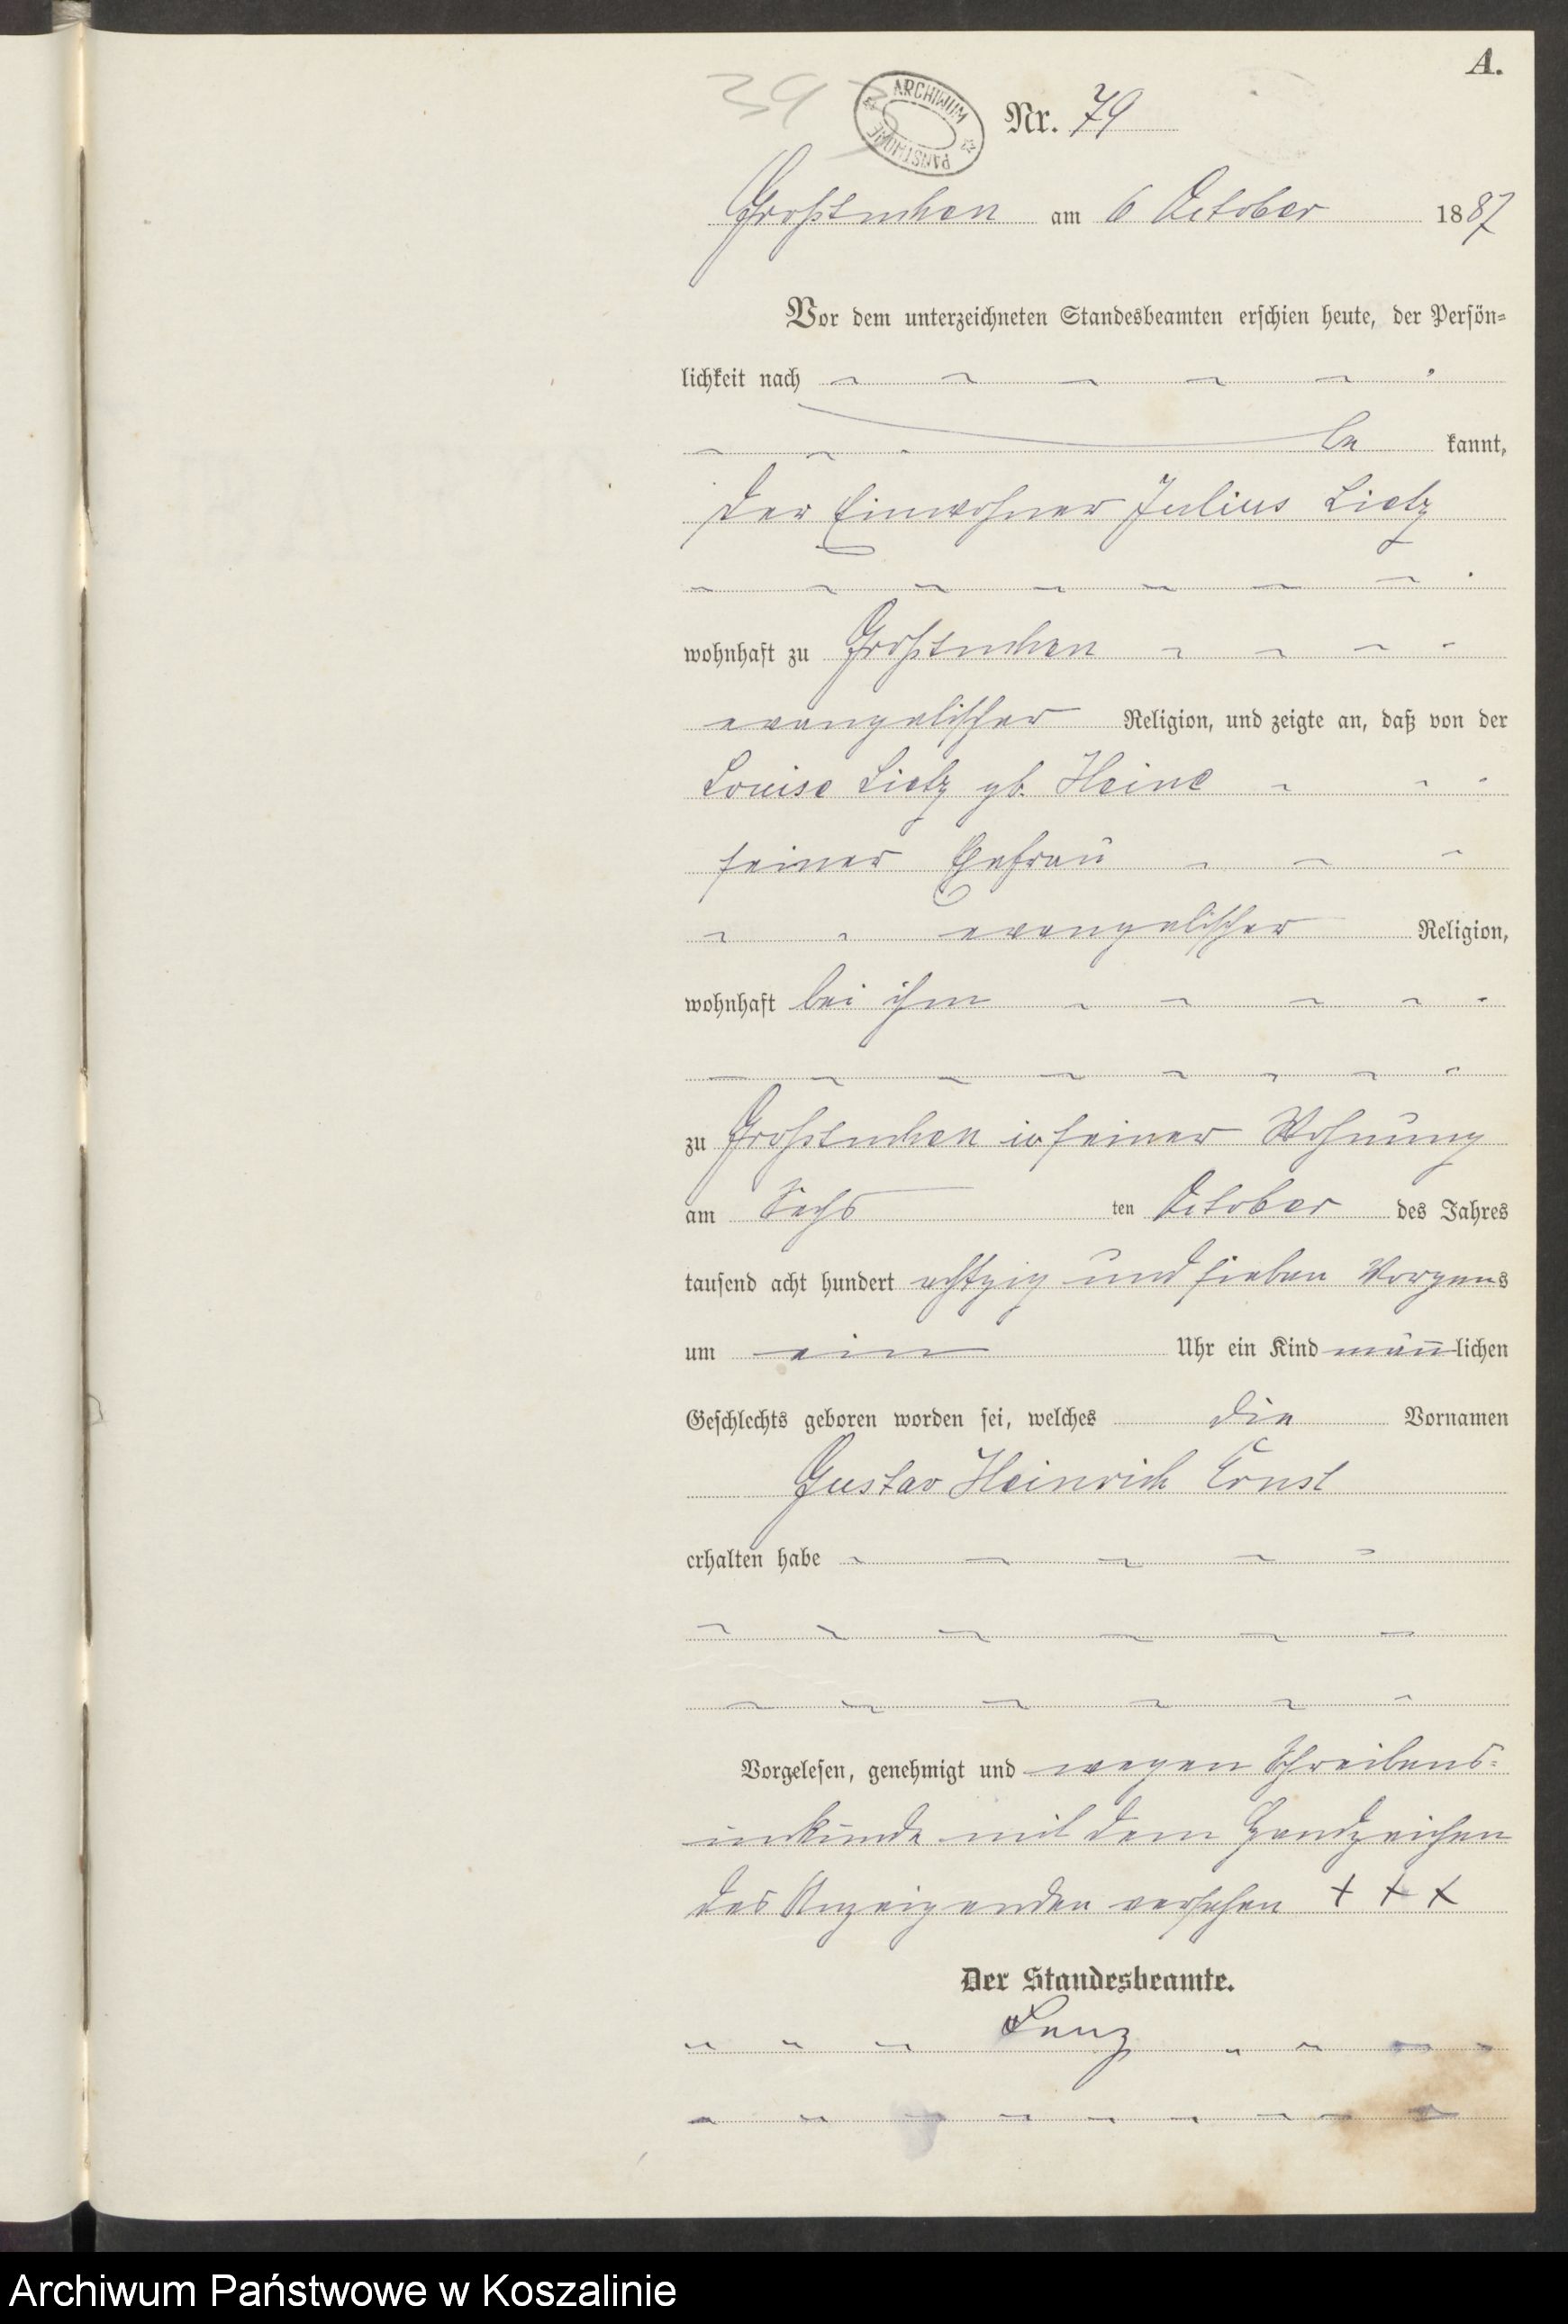 A.
39
ARCHIWUM PAŃSTWOWE
Nr. 79
Großtuchen am 6 October 1887
Vor dem unterzeichneten Standesbeamten erschien heute, der Persön-
lichkeit nach
be kannt,
der Einwohner Julius Lietz
wohnhaft zu Großtuchen
evangelischer Religion, und zeigte an, daß von der
Louise Lietz gb. Heine
seiner Ehefrau
evangelischer Religion,
wohnhaft bei ihm
zu Großtuchen in seiner Wohnung
am Sechs ten October des Jahres
tausend acht hundert achtzig und sieben Morgens
um ein Uhr ein Kind männlichen
Geschlechts geboren worden sei, welches die Vornamen
Gustav Heinrich Ernst
erhalten habe
Vorgelesen, genehmigt und wegen Schreibens-
unkunde mit dem Handzeichen
des Anzeigenden versehen + + +
Der Standesbeamte.
Lenz
Archiwum Państwowe w Koszalinie